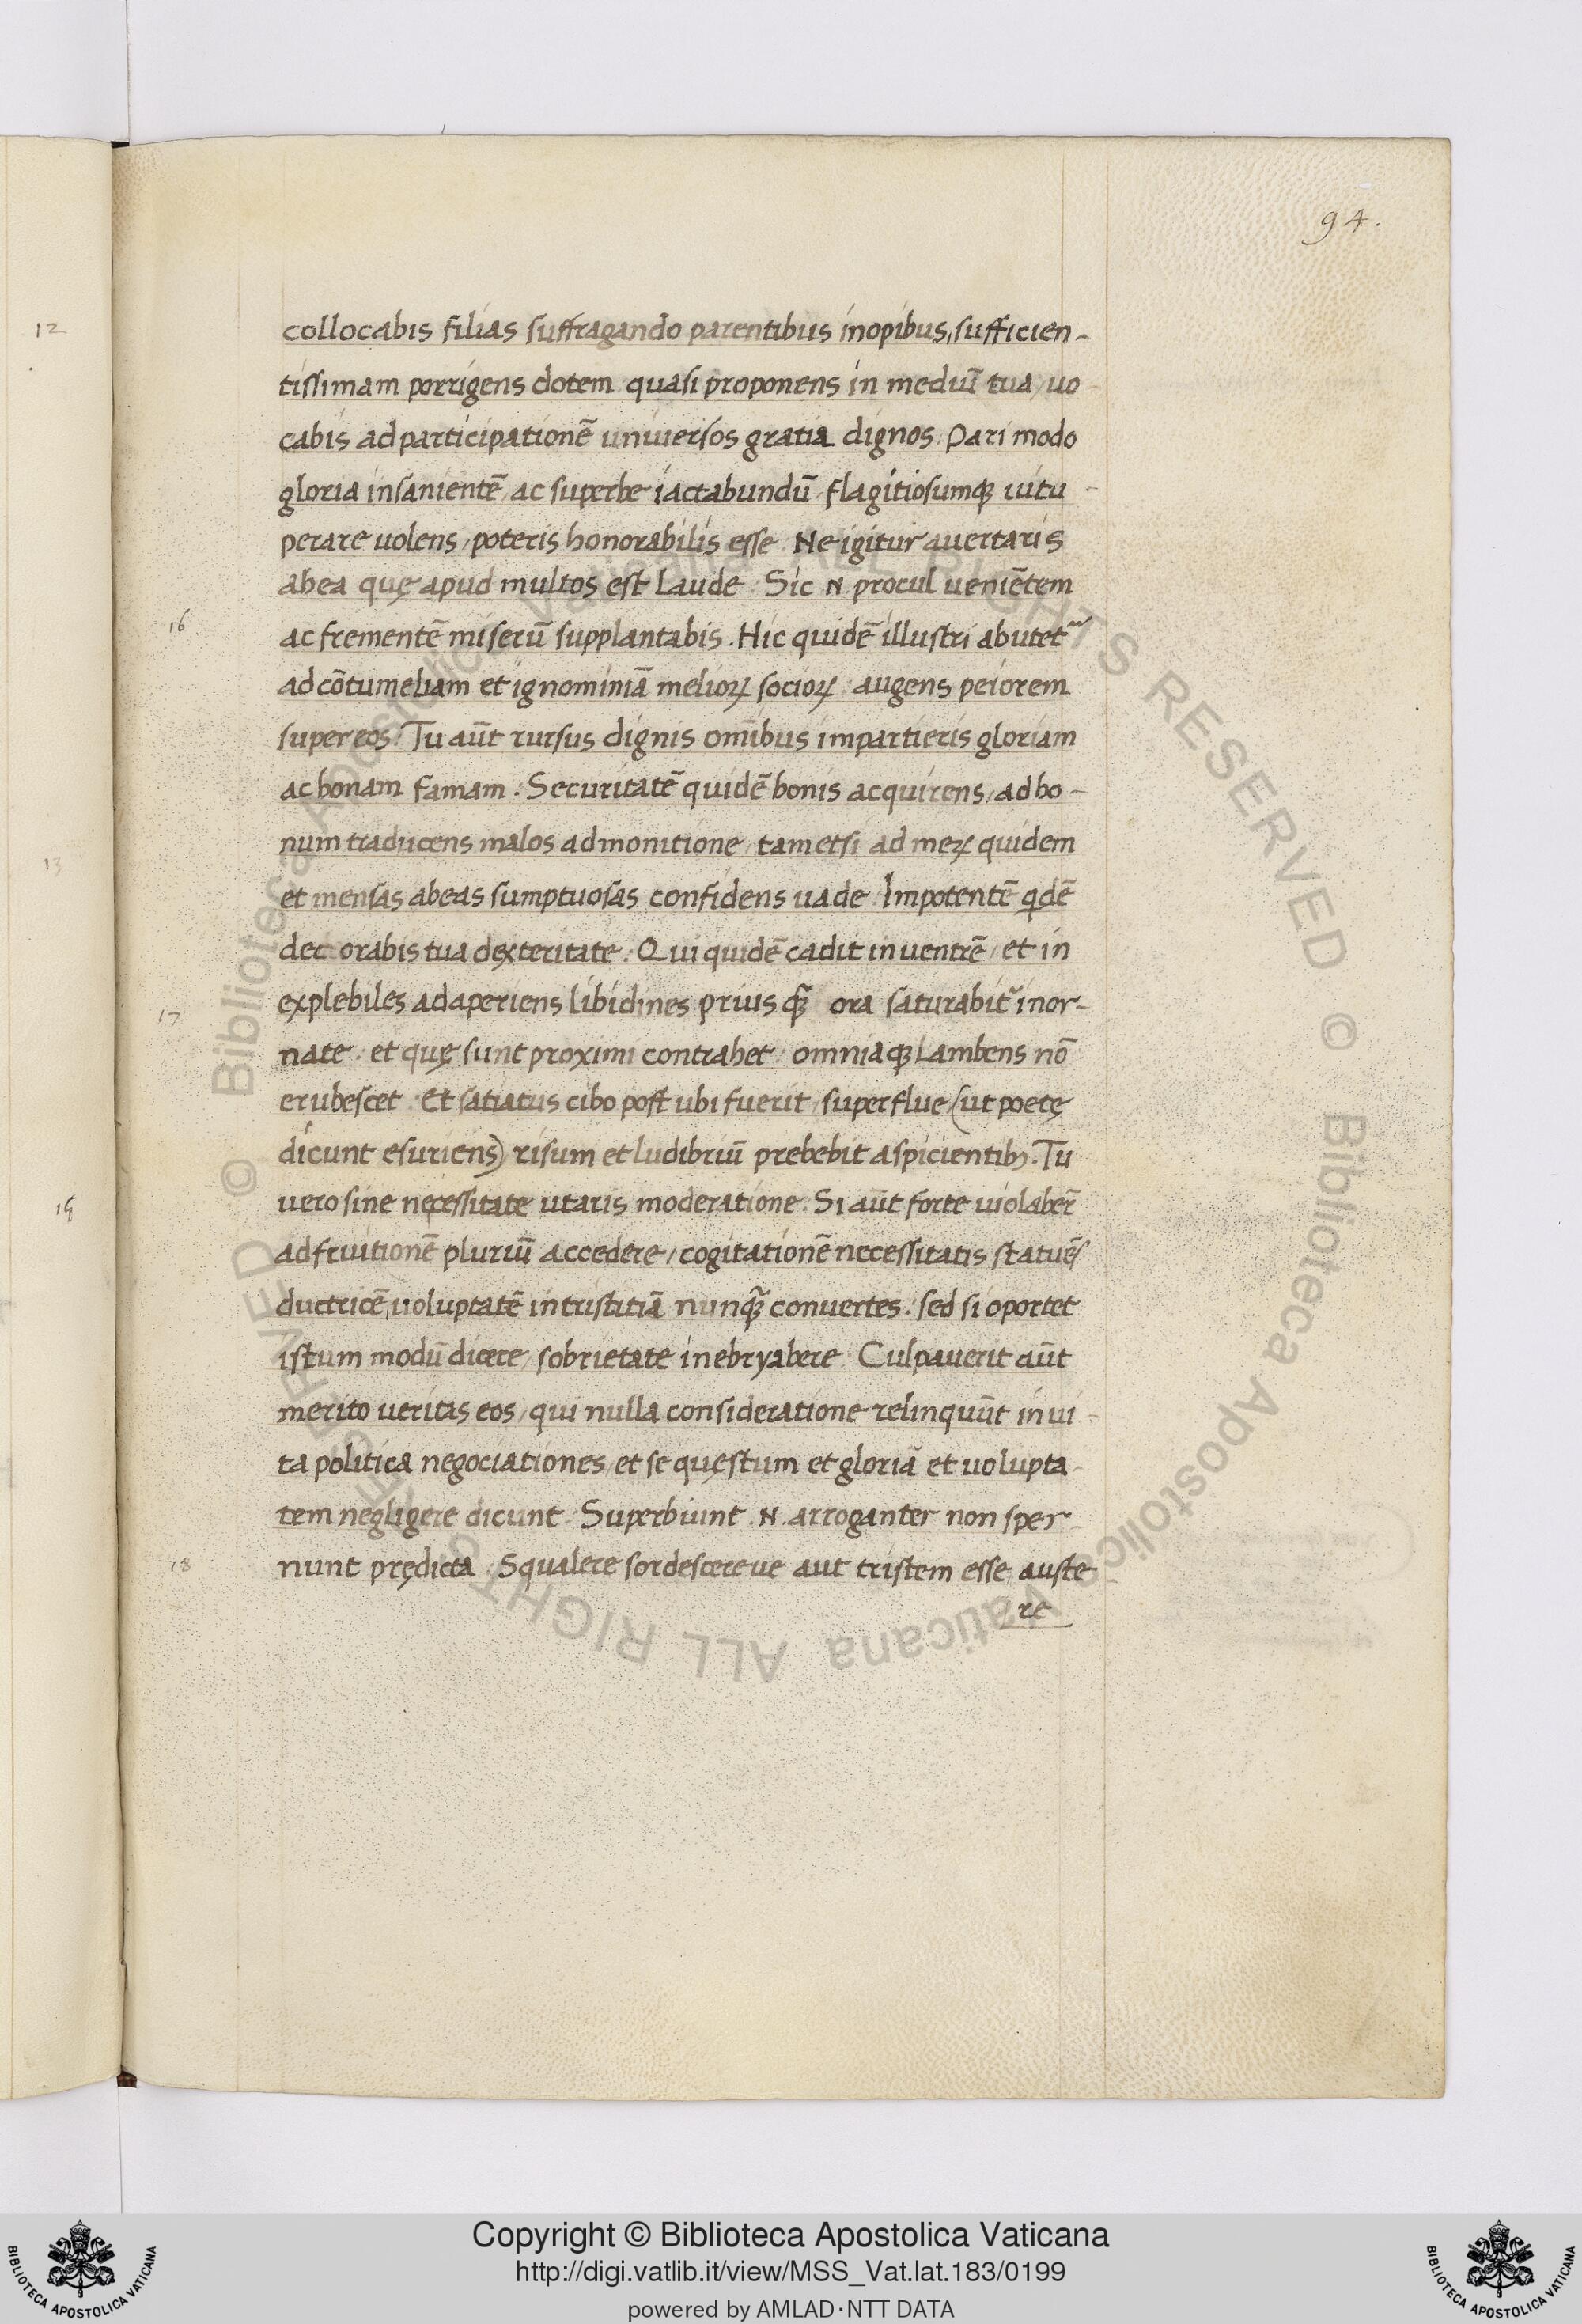 94.
12
collocabis filias suffragando parentibus inopibus, sufficien-
tissimam porrigens dotem quasi proponens in mediũ tua, uo
cabis ad participationẽ uniuersos gratia dignos. Pari modo
gloria insanientẽ, ac superbe iactabundũ, flagitiosumqꝫ uitu-
perare uolens, poteris honorabilis esse. Ne igitur auertaris
abea quę apud multos est laude. Sic .N. procul ueniẽtem
16
ac frementẽ miserũ supplantabis. Hic quidẽ illustri abutet͂
ad cõtumeliam et ignominiã melioꝝ socioꝝ: augens peiorem
super eos. Tu aũt rursus dignis om̃ibus impartieris gloriam
ac bonam famam. Securitatẽ quidẽ bonis acquirens, ad bo-
num traducens malos admonitione, tametsi ad meꝝ quidem
13
et mensas abeas sumptuosas confidens uade. Impotentẽ qdẽ
decorabis tua dexteritate. Qui quidẽ cadit in uentrẽ, et in
explebiles adaperiens libidines prius qꝫ̃ ora saturabit͂ inor-
17
nate: et quę sunt proximi contrahet: omniaqꝫ lambens nõ
erubescet. Et satiatus cibo post ubi fuerit, superflue (ut poetę
dicunt esuriens) risum et ludibriũ prebebit aspicientibꝫ. Tu
uero sine necessitate utaris moderatione. Si aũt forte uiolaber̃
15
ad fruitionẽ pluriũ accedere, cogitationẽ necessitatis statuẽs
ductricẽ, uoluptatẽ in tristitiã nunqꝫ̃ conuertes. sed si oportet
istum modũ dicere, sobrietate inebryabere. Culpauerit aũt
merito ueritas eos, qui nulla consideratione relinquũt in ui-
ta politica negociationes, et se quęstum et gloriã et uolupta-
tem negligere dicunt. Superbiunt .N. arroganter non sper-
18
nunt prędicta. Squalere sordescereue aut tristem esse auste-
re
© Biblioteca Apostolica Vaticana ALL RIGHTS RESERVED © Biblioteca Apostolica Vaticana ALL RIGHTS RESERVED
Copyright © Biblioteca Apostolica Vaticana
http://digi.vatlib.it/view/MSS_Vat.lat.183/0199
powered by AMLAD·NTT DATA
BIBLIOTECA APOSTOLICA VATICANA
BIBLIOTECA APOSTOLICA VATICANA